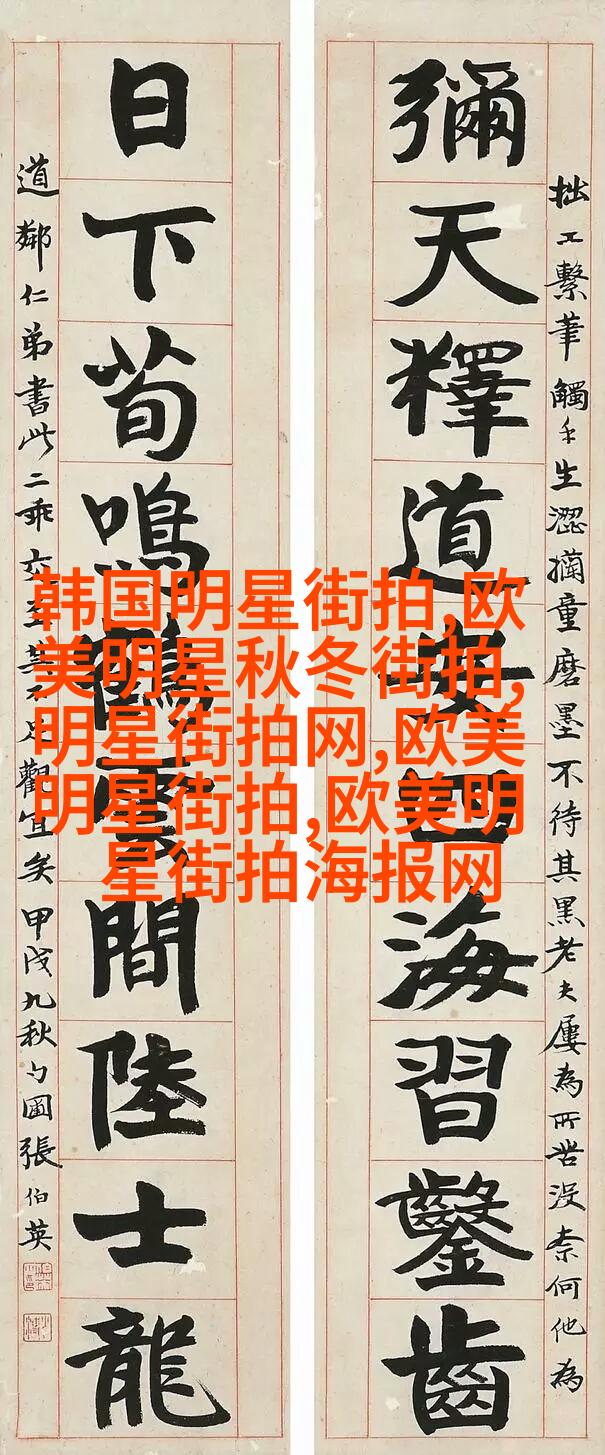 韩国明星街拍,欧
美明星秋冬街拍,
明星街拍网,欧美
明星街拍,欧美明
星街拍海报网
拙工繫筆觸手生澀童磨墨不待其黑老夫屢為所苦没奈何他為
彌天釋道安四海習鑿齒
日下荀鳴鶴雲間陸士龍
道鄰仁弟書此二乖交至其不足觀宜矣甲戌九秋勺圃張伯英